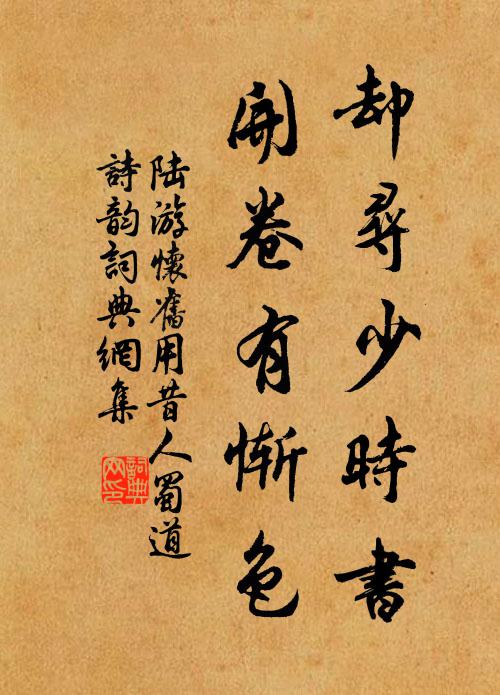 却尋少時書
開卷有慚色
陸游懷舊用昔人蜀道
詩韵詞典網集
詞典